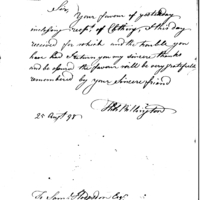 Sir,
Your favour of yesterday
inclosing recpt. of Clothing, I this day
received for which and the trouble you
have had I return you my sincere thanks
and be assured the favour will be very gratefully
remembered by your sincere friend
25 Augt. 98
To Saml. Hodgdon Esqr.